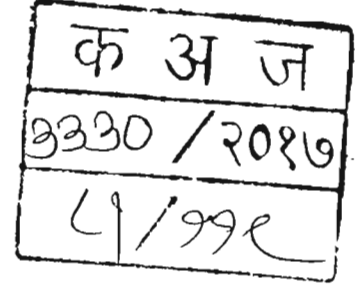 क अ ज
३३३० / २०१७
५ / ११९